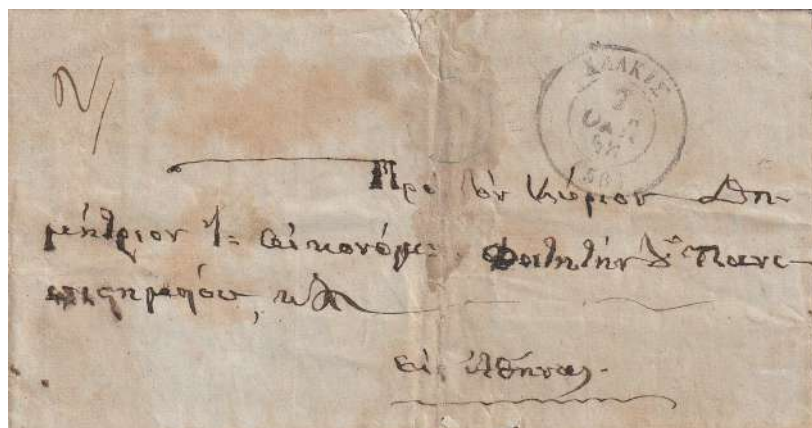 ΧΑΛΚΙΣ
Πρὸς τὸν Κύριον Δη-
μήτριον Οἰκονόμ:
Φοιτητὴν τοῦ Πανε-
πιστημίου, κλ
εἰς Ἀθήνας.